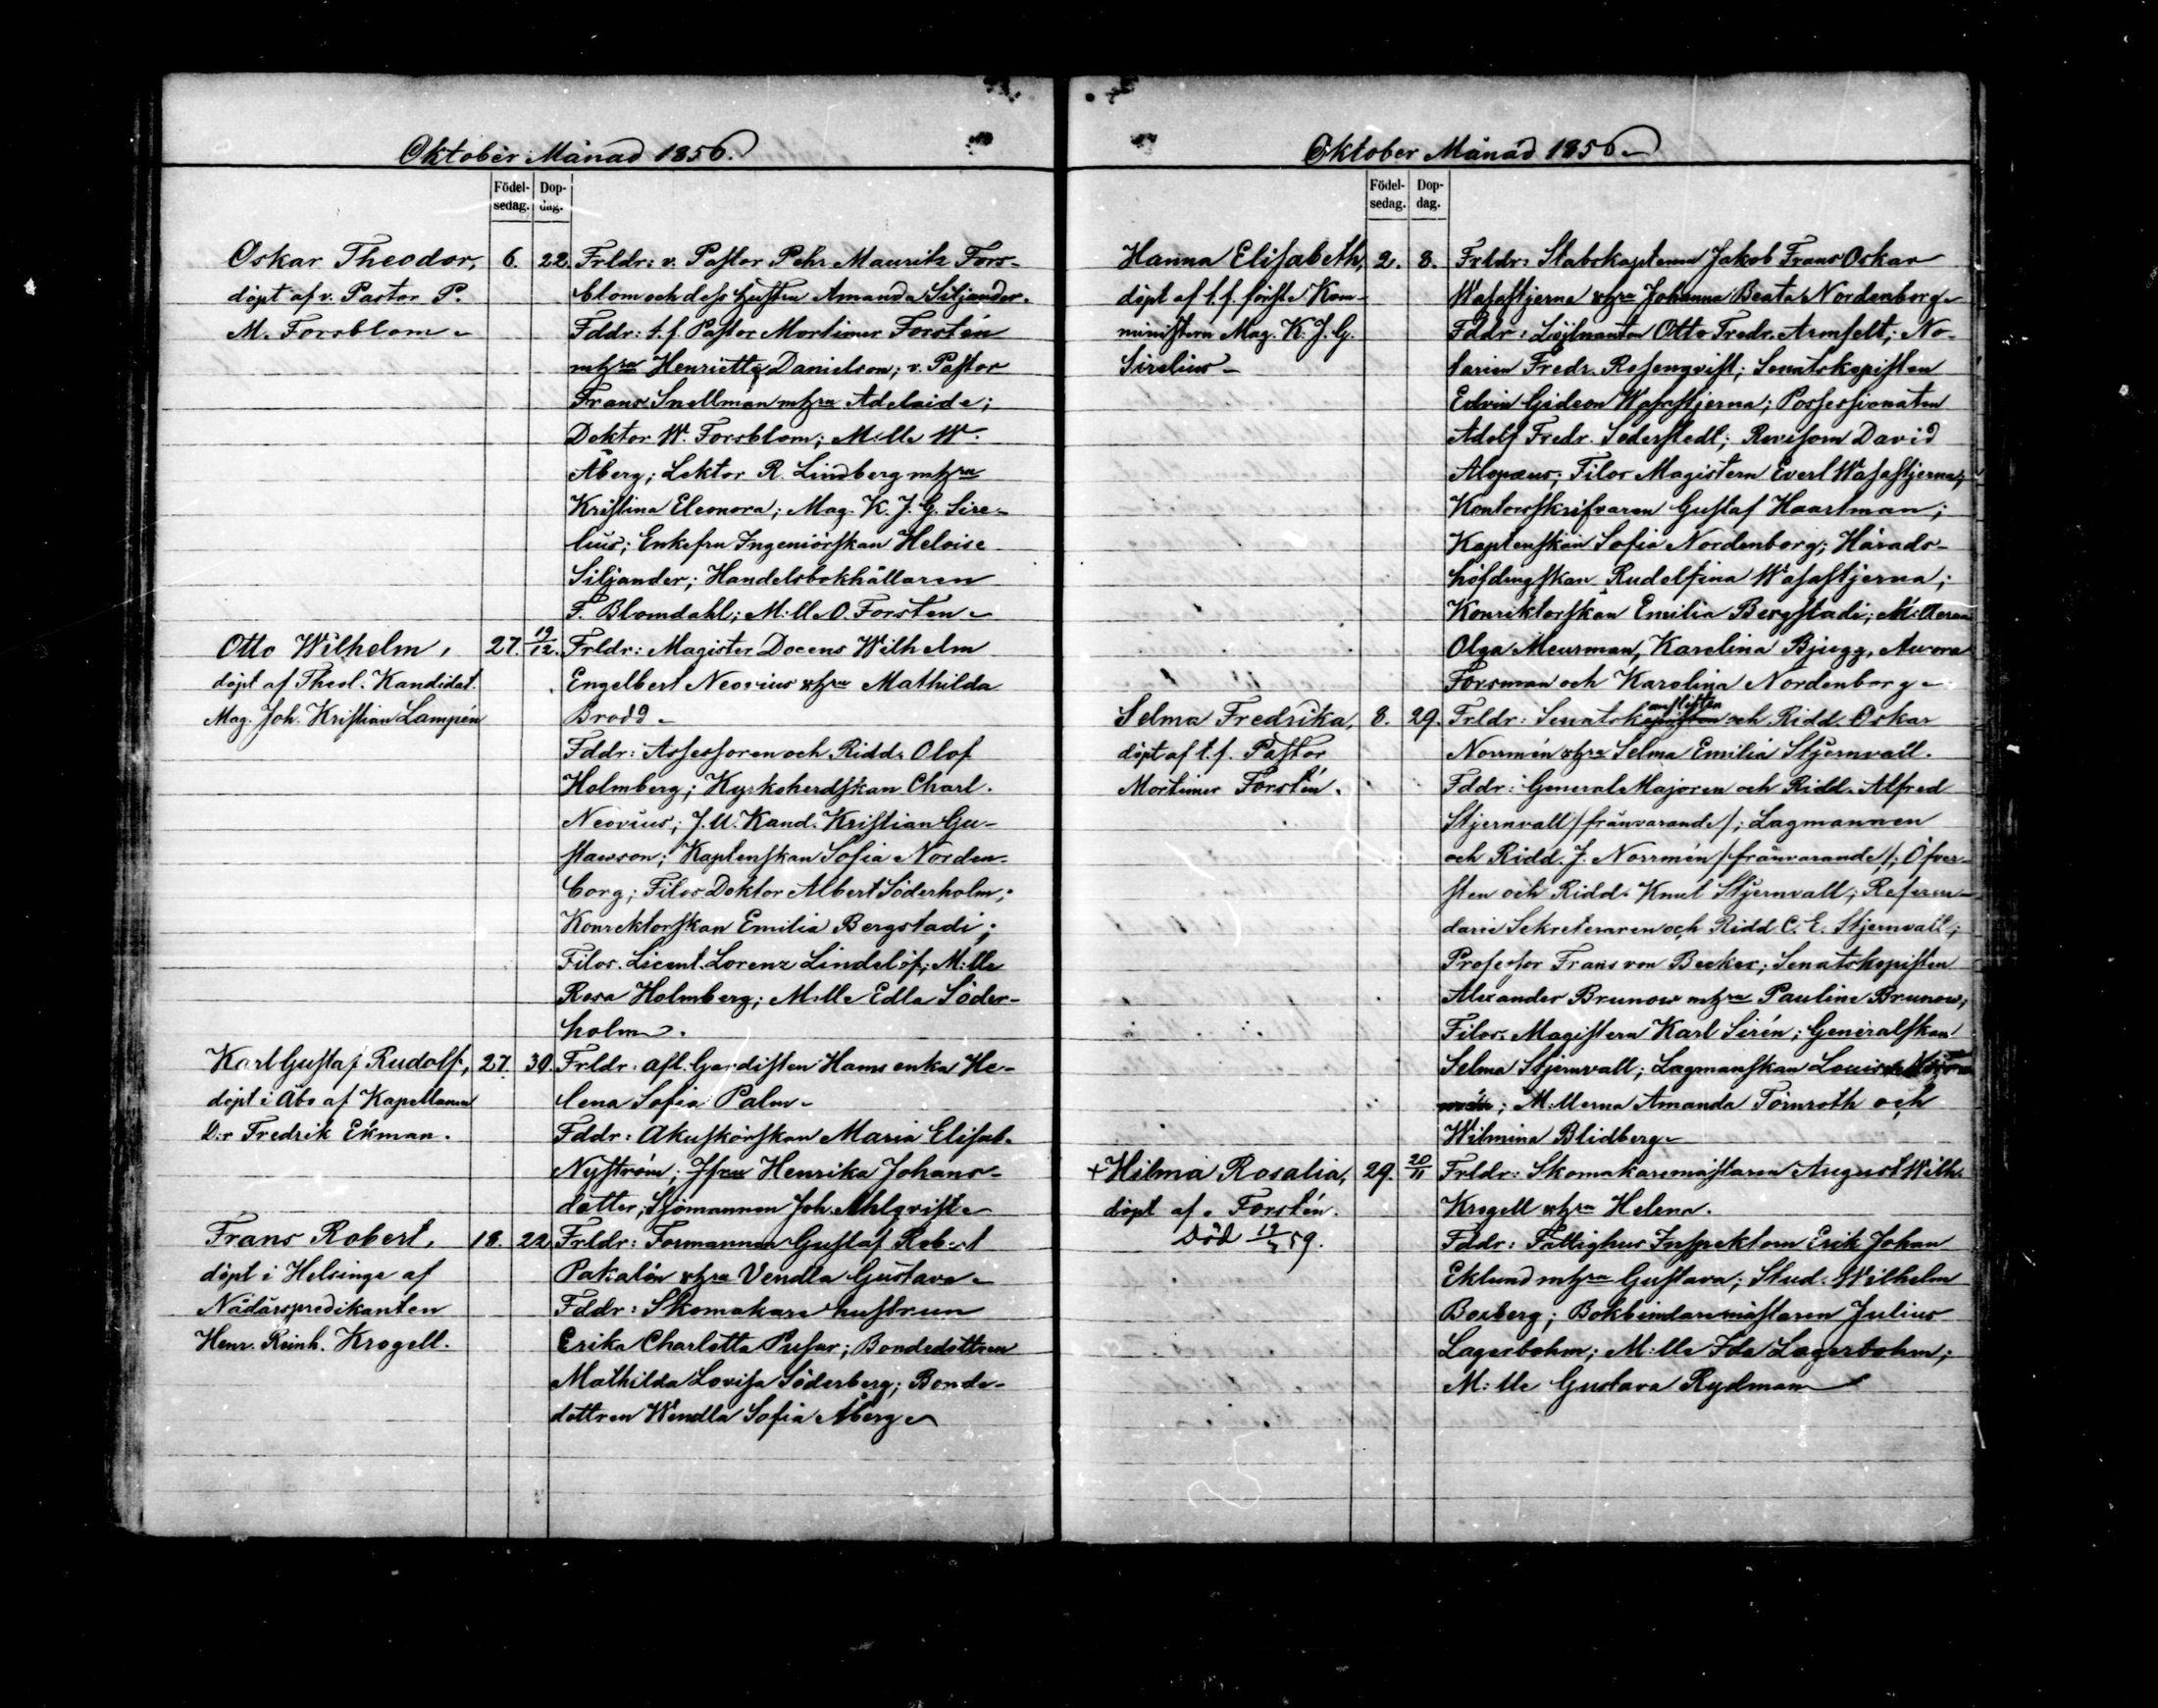 Oktober Månad 1856.
Födel-
sedag.
Dop-
dag.
Oskar Theodor,
döpt af v. Pastor P.
M. Forsblom
6.
22.
Frldr: v. Pastor Pehr Mauritz Fors-
blom och dess hustru Amanda Siljander.
Fddr: t. f. Pastor Mortimer Forstén
m hru Henrietta Danielson; v. Pastor
Frans Snellman m hru Adelaide;
Doktor W. Forsblom; M:lle W.
Åberg; Lektor R. Lindberg m hru
Kristina Eleonora; Mag. K. J. G. Sire-
lius; Enkefru Ingeniörskan Heloise
Siljander; Handelsbokhållaren
F. Blomdahl; M:lle O. Forsten
Otto Wilhelm,
döpt af Theol. Kandidat.
Mag. Joh. Kristian Lampén
27.
19/12.
Frldr: Magister Docens Wilhelm
Engelbert Neovius o hru Mathilda
Brodd
Fddr: Assessoren och Ridd. Olof
Holmberg; Kyrkoherdskan Charl.
Neovius; J. U. Kand. Kristian Gu-
stawson; Kaptenskan Sofia Norden-
borg; Filos Doktor Albert Söderholm;
Konrektorskan Emilia Bergstadi;
Filos. Licent. Lorenz Lindelöf; M:lle
Rosa Holmberg; M:lle Edla Söder-
holm.
Karl Gustaf Rudolf,
döpt i Åbo af Kapellanen
D:r Fredrik Ekman.
27.
30.
Frldr: afl. Gardisten Hams enka He-
lena Sofia Palm
Fddr: Akuskörskan Maria Elisab.
Nyström; Jfru Henrika Johans-
dotter; Sjömannen Joh. Ahlqvist
Frans Robert,
döpt i Helsinge af
Nådårspredikanten
Henr. Reinh. Krogell.
18.
22.
Frldr: Formannen Gustaf Robert
Pakalén o hru Vendla Gustava
Fddr: Skomakare hustrun
Erika Charlotta Pufar; Bondedottren
Mathilda Lovisa Söderberg; Bonde-
dottren Wendla Sofia Åberg
Oktober Månad 1856
Födel-
sedag.
Dop-
dag.
Hanna Elisabeth,
döpt af t. f. förste Kom-
ministern Mag. K. J. G.
Sirelius
2.
8.
Frldr: Stabskaptenen Jakob Frans Oskar
Wasastjerna o hru Johanna Beata Nordenborg
Fddr: Löjtnanten Otto Fredr. Armfelt; No-
tarien Fredr. Rosenqvist; Senatskopisten
Edvin Gideon Wasastjerna; Possessionaten
Adolf Fredr. Söderstedt; Revisorn David
Alopæus; Filos Magistern Evert Wasastjerna;
Kontorsskrifvaren Gustaf Haartman;
Kaptenskan Sofia Nordenborg; Härads-
höfdingskan Rudolfina Wasastjerna;
Konrektorskan Emilia Bergstadi; M:llerna
Olga Meurman, Karolina Bjugg, Aurora
Forsman och Karolina Nordenborg
Selma Fredrika,
döpt af t. f. Pastor
Mortimer Forstén.
8.
29.
Frldr: Senatskanslisten och Ridd. Oskar
Norrmén o hru Selma Emilia Stjernvall.
Fddr: General Majoren och Ridd. Alfred
Stjernvall /frånvarande/; Lagmannen
och Ridd. J. Norrmén /frånvarande/; Öfver-
sten och Ridd. Knut Stjernvall; Referen-
darie Sekreteraren och Ridd C. E. Stjernvall;
Professor Frans von Becker; Senatskopisten
Alexander Brunow m hru Pauline Brunow;
Filos. Magistern Karl Sirén; Generalskan
Selma Stjernvall; Lagmanskan Louise
; M:llerna Amanda Törnroth och
Wilmina Blidberg
+Hilma Rosalia,
döpt af Forstén.
död 59.
29.
20/11
Frldr: Skomakaremästaren August Wilh.
Krogell o hru Helena.
Fddr: Fattighus Inspektorn Erik Johan
Eklund m hru Gustava; Stud. Wilhelm
Boxberg; Bokbindaremästaren Julius
Lagerbohm; M:lle Ida Lagerbohm;
M:lle Gustava Rydman